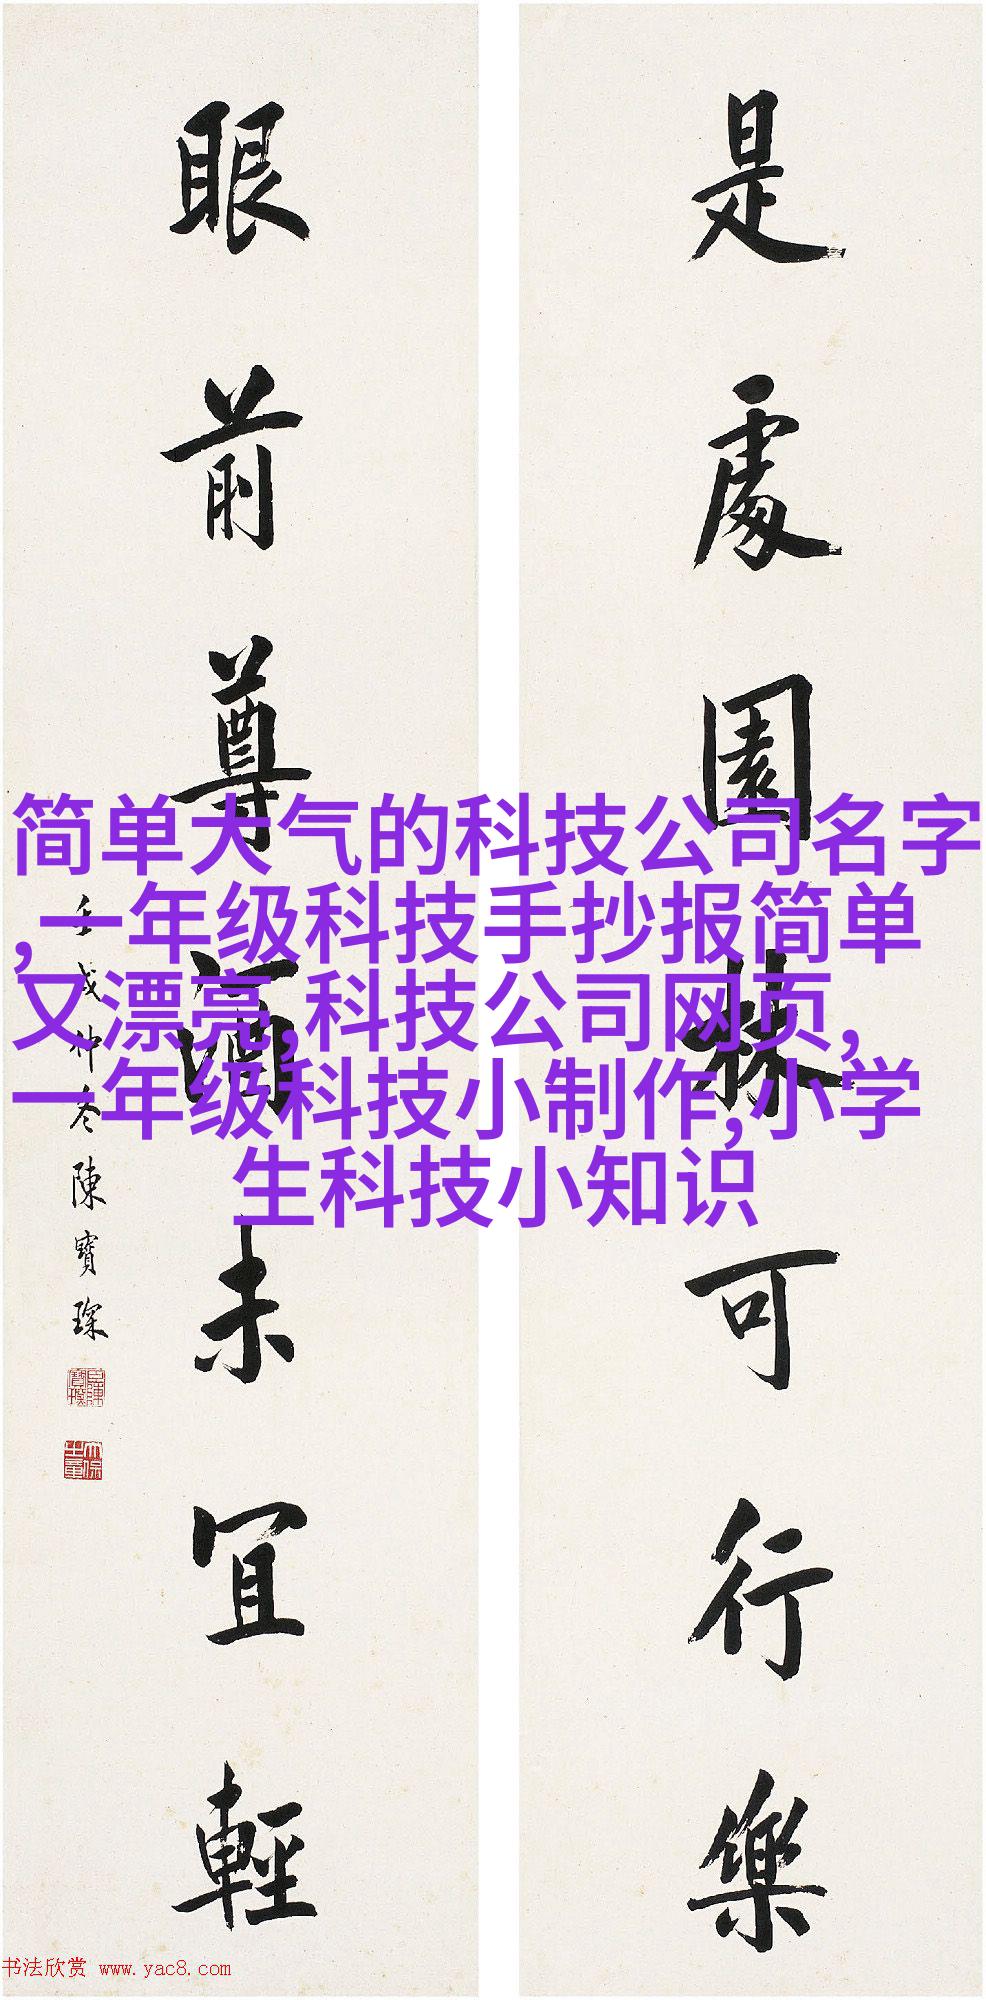 是處園林可行樂
眼前尊酒未宜輕
壬戌仲冬陳寶琛
简单大气的科技公司名字
,一年级科技手抄报简单
又漂亮,科技公司网页,
一年级科技小制作,小学
生科技小知识
书法欣赏 www.yac8.com